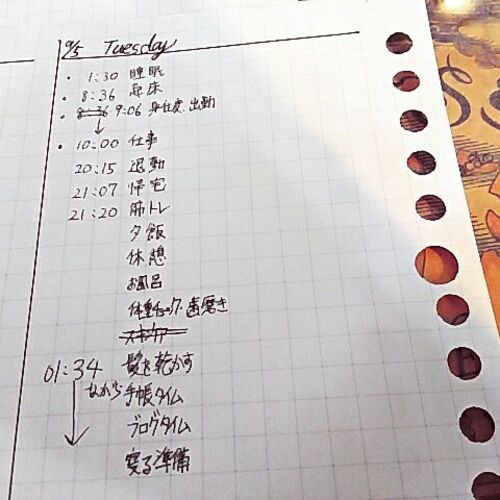 9/5 Tuesday
・ 1:30 睡眠
・ 8:36 起床
・ 8:36 9:06 身仕度、出勤
↓
・ 10:00 仕事
20:15 退勤
21:07 帰宅
21:20 筋トレ
夕飯
休憩
お風呂
体重チェック・歯磨き
01:34 髪を乾かす
ながら 手帳タイム
ブログタイム
寝る準備